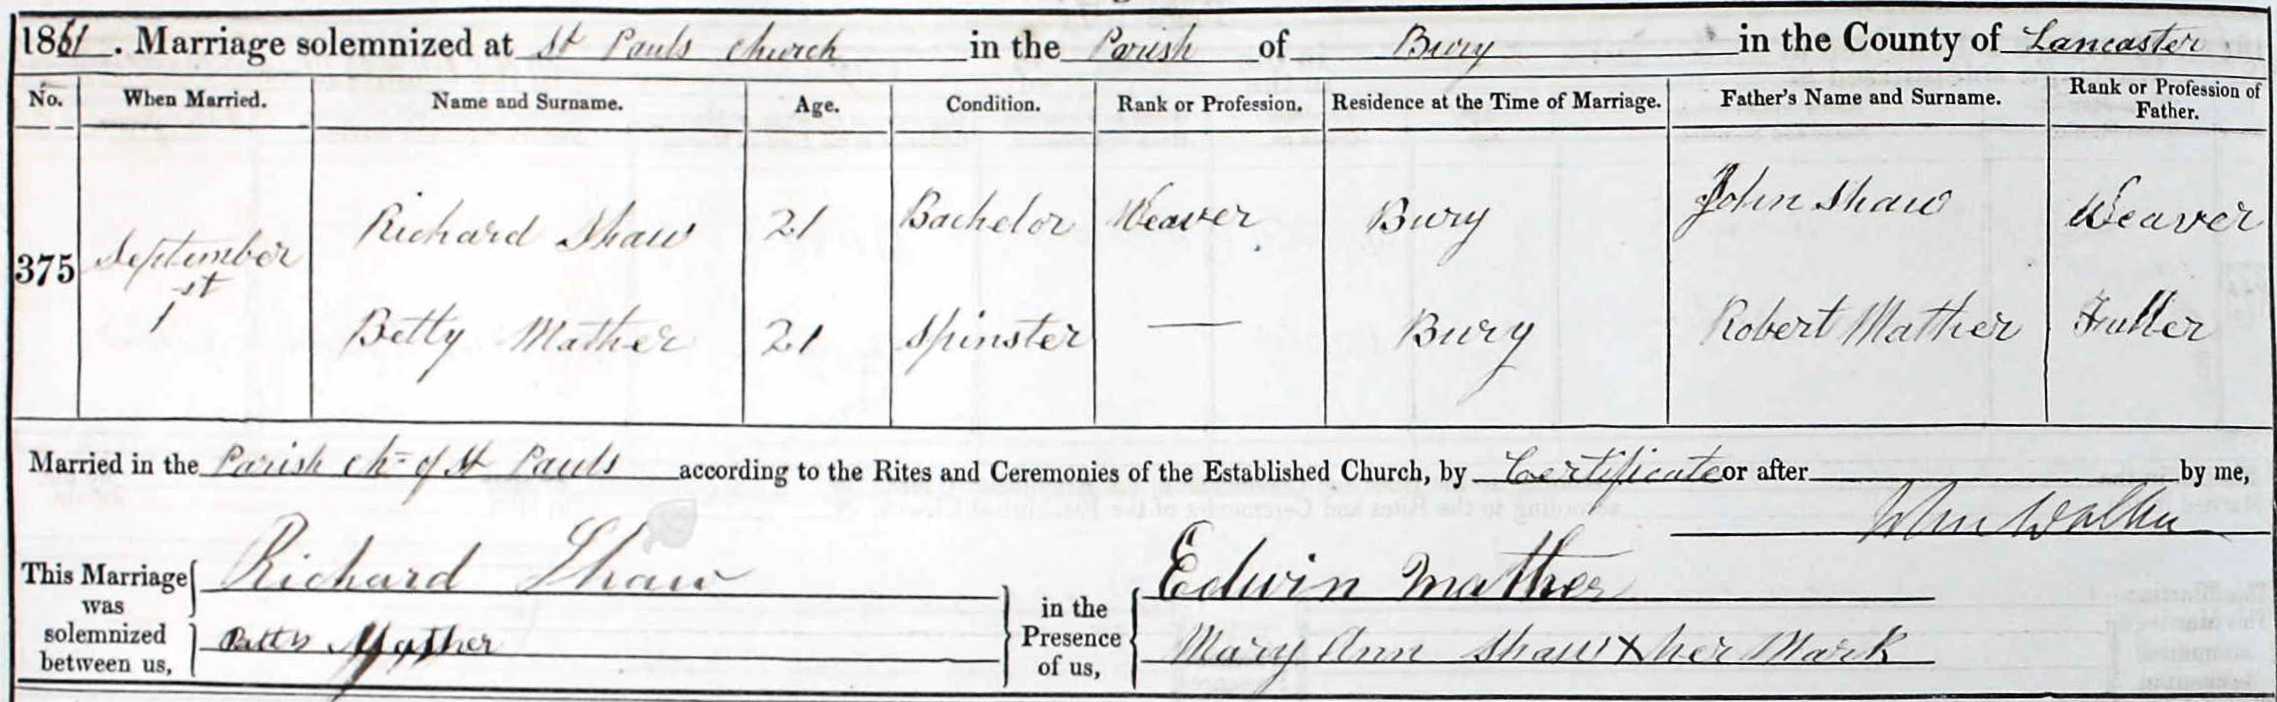 1861. Marriage solemnized at St Pauls Church in the Parish of Bury in the County of Lancaster
No. When Married. Name and Surname. Age. Condition. Rank or Profession. Residence at the Time of Marriage. Father's Name and Surname. Rank or Profession of Father.
375 September 1st Richard Shaw 21 Bachelor Weaver Bury John Shaw Weaver
Betty Mather 21 Spinster — Bury Robert Mather Fuller
Married in the Parish Ch= of St Pauls according to the Rites and Ceremonies of the Established Church, by Certificate or after by me,
John Walker
This Marriage was solemnized between us, Richard Shaw in the Presence of us, Edwin Mather
Betty Mather Mary Ann Shaw X her Mark